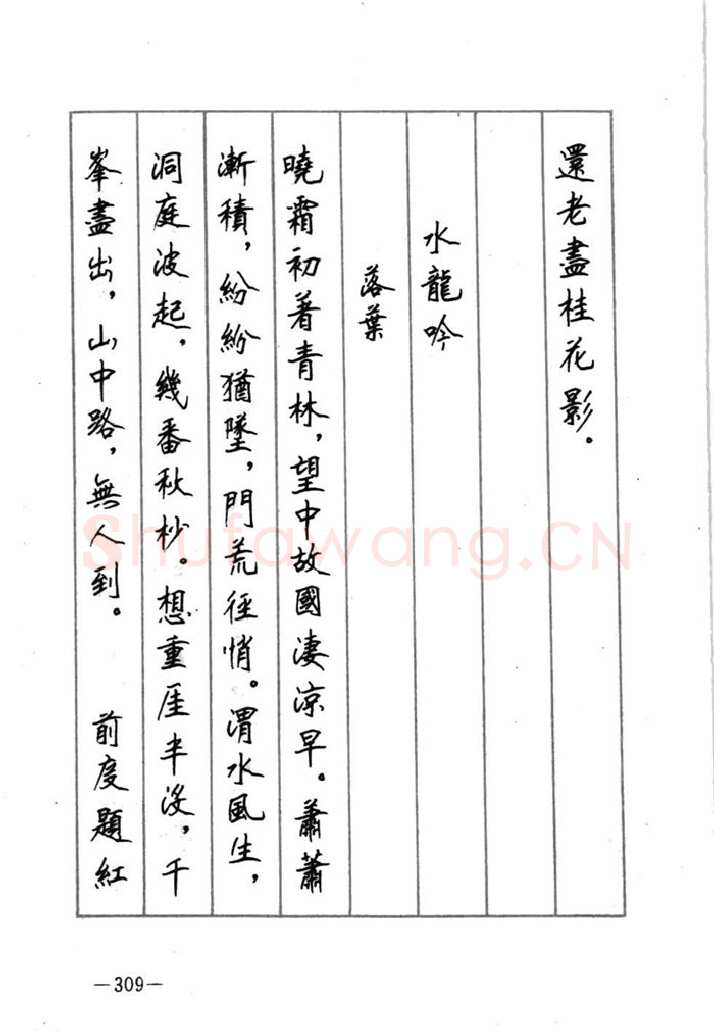 還老盡桂花影。
水龍吟
落葉
曉霜初著青林，望中故國淒涼早。蕭蕭
漸積，紛紛猶墜，門荒徑悄。渭水風生，
洞庭波起，幾番秋杪。想重厓半沒，千
峯盡出，山中路，無人到。 前度題紅
Shufawang.CN
—309—